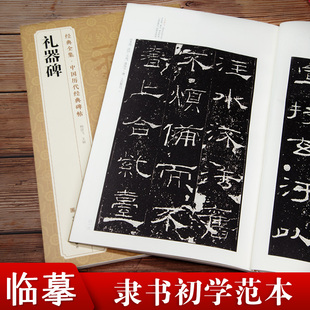 礼器碑
经典全集·中国历代经典碑帖
注水流法舊
不煩備而不
奢上合紫臺
临摹
隶书初学范本